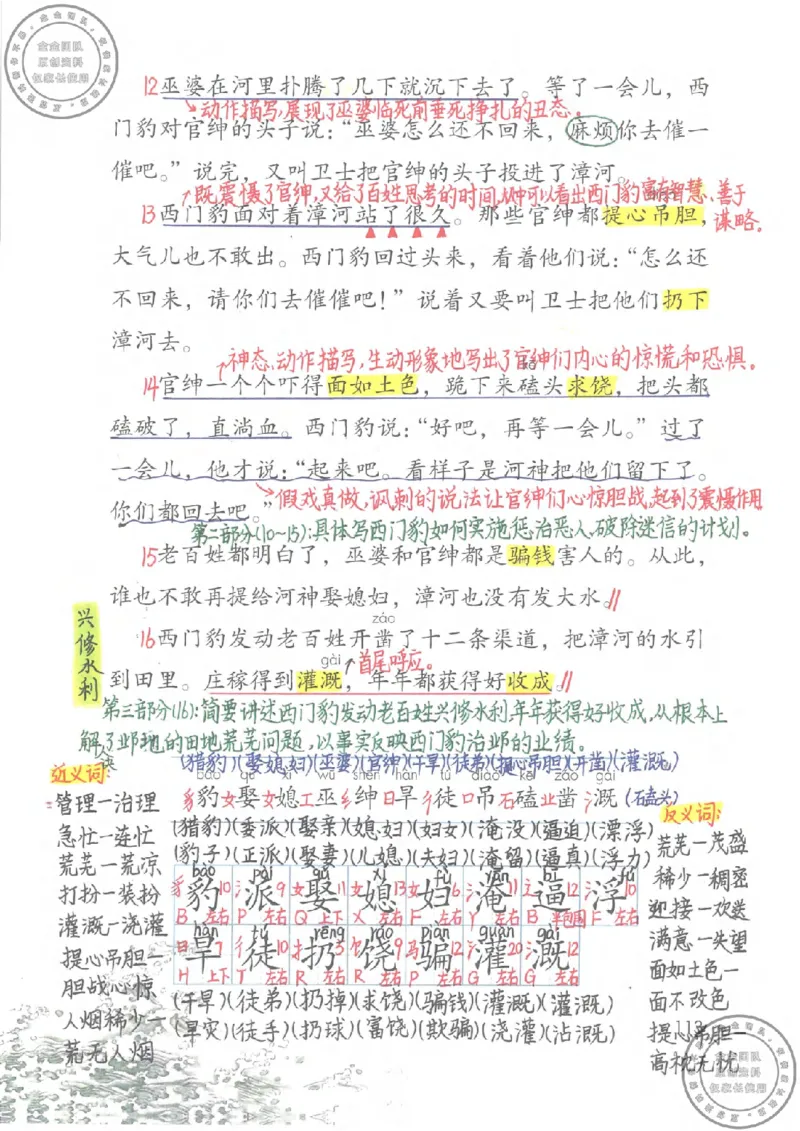 12巫婆在河里扑腾了几下就沉下去了。等了一会儿，西
动作描写,展现了巫婆临死前垂死挣扎的丑态。
门豹对官绅的头子说：“巫婆怎么还不回来，麻烦你去催一
催吧。”说完，又叫卫士把官绅的头子投进了漳河。
既震慑了官绅,又给了百姓思考的时间,从中可以看出西门豹富有智慧、善于
谋略。
13西门豹面对着漳河站了很久。那些官绅都提心吊胆，
大气儿也不敢出。西门豹回过头来，看着他们说：“怎么还
不回来，请你们去催催吧！”说着又要叫卫士把他们扔下
漳河去。
神态、动作描写,生动形象地写出了官绅们内心的惊慌和恐惧。
14官绅一个个吓得面如土色，跪下来磕头求饶，把头都
磕破了，直淌血。西门豹说：“好吧，再等一会儿。”过了
一会儿，他才说：“起来吧。看样子是河神把他们留下了。
你们都回去吧。”
假戏真做,讽刺的说法让官绅们心惊胆战,起到了震慑作用
第二部分(10~15):具体写西门豹如何实施惩治恶人,破除迷信的计划。
15老百姓都明白了，巫婆和官绅都是骗钱害人的。从此，
谁也不敢再提给河神娶媳妇，漳河也没有发大水。
兴修水利
záo
16西门豹发动老百姓开凿了十二条渠道，把漳河的水引
gài
首尾呼应。
到田里。庄稼得到灌溉，年年都获得好收成。
第三部分(16):简要讲述西门豹发动老百姓兴修水利,年年获得好收成,从根本上
解了邺地的田地荒芜问题,以事实反映西门豹治邺的业绩。
决
(猎豹)(娶媳妇)(巫婆)(官绅)(干旱)(徒弟)(提心吊胆)(开凿)(灌溉)
bào qǔ xí wū shēn hàn tú diào kē záo gài
豸豹女娶女媳工巫纟绅日旱彳徒口吊石磕业凿氵溉(石磕头)
(猎豹)(委派)(娶亲)(媳妇)(妇女)(淹没)(逼迫)(漂浮)
(豹子)(正派)(娶妻)(儿媳)(夫妇)(淹留)(逼真)(浮力)
bào pài qǔ xí fù yān bī fú
豸豹10 氵派9 女娶11 女媳13 女妇6 氵淹11 辶逼12 氵浮10
B 左右 P 左右 Q 上下 X 左右 F 左右 Y 左右 B 半包围 F 左右
hàn tú rēng ráo piàn guàn gài
日旱7 彳徒10 扌扔5 饣饶9 马骗12 氵灌20 氵溉12
H 上下 T 左右 R 左右 R 左右 P 左右 G 左右 G 左右
(干旱)(徒弟)(扔掉)(求饶)(骗钱)(灌溉)(灌溉)
(旱灾)(徒手)(扔球)(富饶)(欺骗)(浇灌)(沾溉)
近义词:
管理一治理
急忙一连忙
荒芜一荒凉
打扮一装扮
灌溉一浇灌
提心吊胆一
胆战心惊
人烟稀少一
荒无人烟
反义词:
荒芜一茂盛
稀少一稠密
迎接一欢送
满意一失望
面如土色一
面不改色
提心吊胆一
高枕无忧
113
念念团队
原创资料
仅家长使用
念念团队
原创资料
仅家长使用